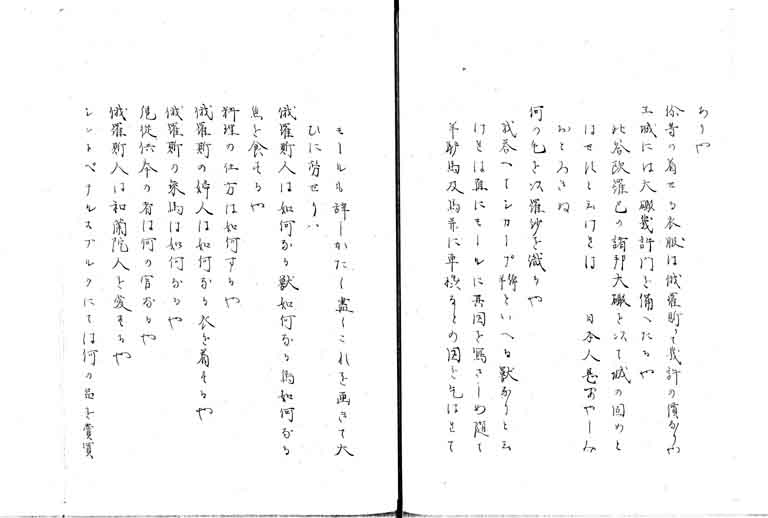 ありや
徐等の着せる衣服は俄羅斯にて幾許の價なりや
王城には大礮幾許門を備へたるや
此答欧羅巴の諸邦大礮を以て城の固めと
はせすと云けれは 日本人甚あやしみ
おとろきぬ
何の毛を以羅紗を織るや
我答へてシカープ 綿 といへる獣なりと云
けれは直にモールに其図を寫さしめ随て
羊驢馬及馬並に車橇等の図を乞はせて
モールも辞しかたく盡くこれを画きて大
ひに労せり
俄羅斯人は如何なる獣如何なる鳥如何なる
魚を食するや
料理の仕方は如何するや
俄羅斯の婦人は如何なる衣を着するや
俄羅斯の乗馬は如何なるや
従命の者は何の官なるや
俄羅斯人は和蘭陀人を愛するや
シントペテルスブルクにては何の品を賣買